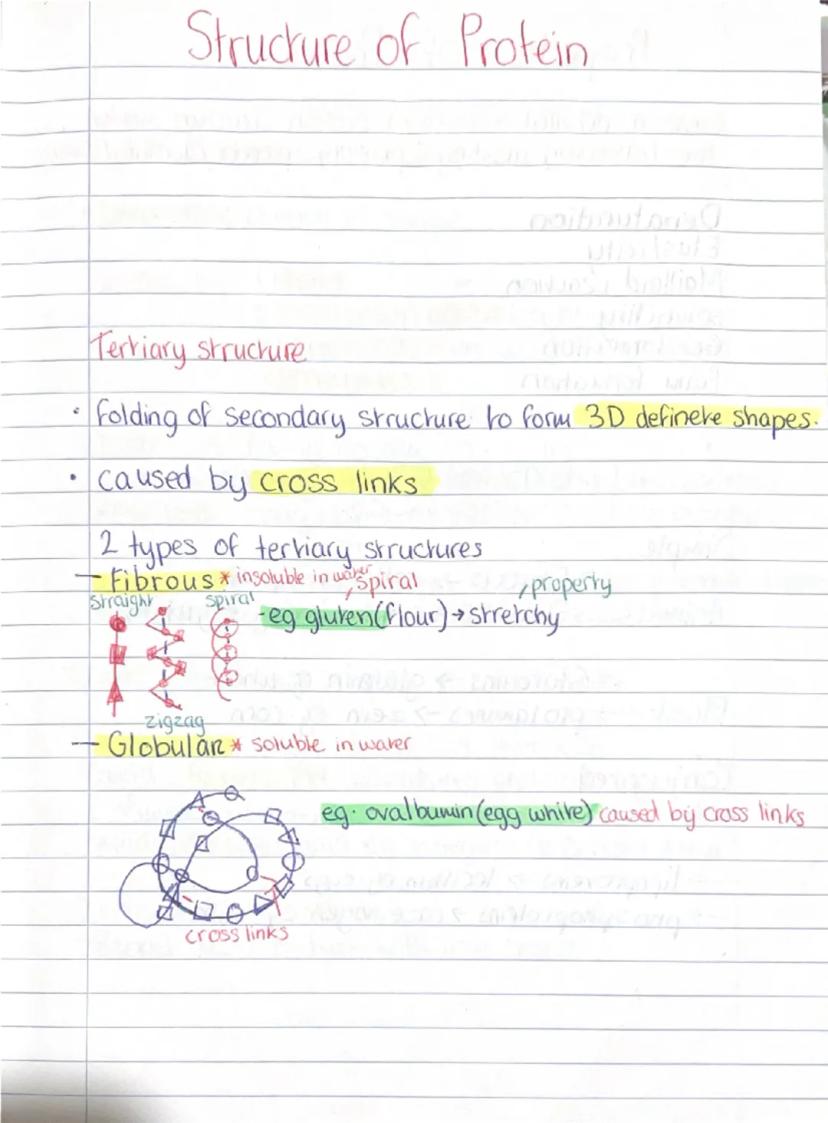 Structure of Protein
Tertiary structure
• folding of secondary structure to form 3D definete shapes.
• caused by cross links
2 types of tertiary structures
– Fibrous * insoluble in water
spiral
property
straight
spiral
eg gluten (flour) → stretchy
zigzag
– Globular * soluble in water
eg. ovalbumin (egg white) caused by cross links
cross links